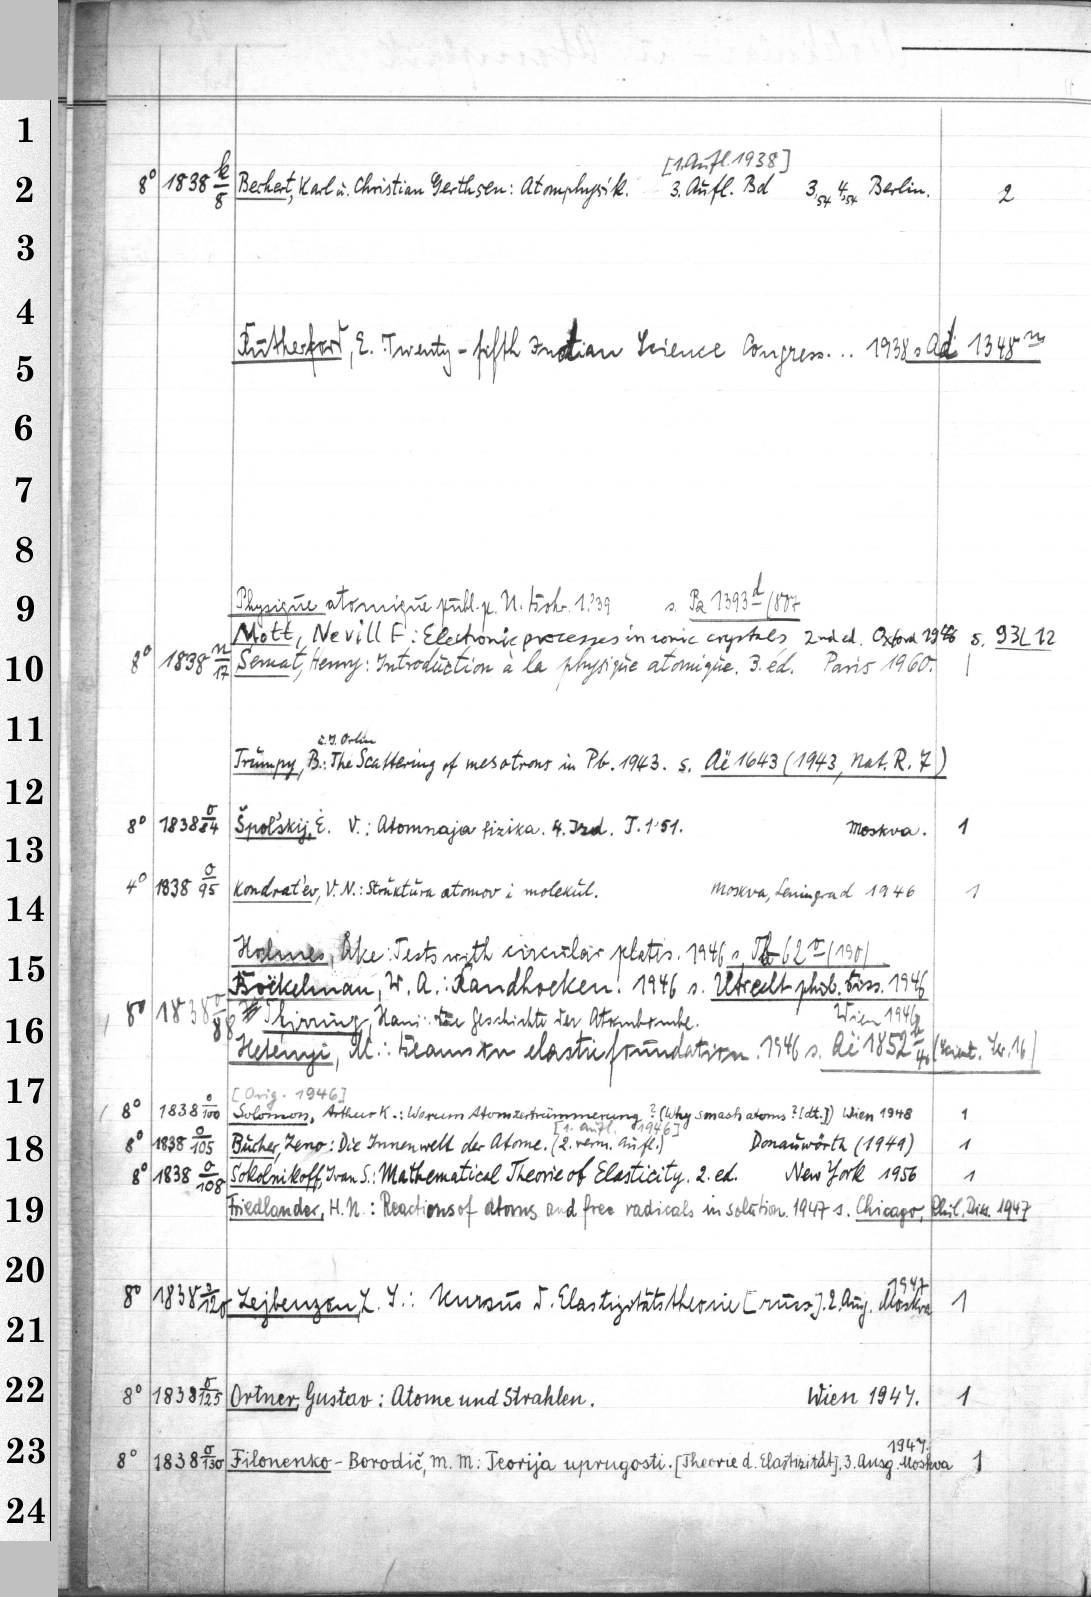 1
[1. Aufl. 1938]
2 8° 1838 k/8 Bechert, Karl u. Christian Gerthsen: Atomphysik. 3. Aufl. Bd 3,54 4,54 Berlin. 2
3
4
Rutherford, E. Twenty-fifth Indian Science Congress... 1938 s. Ad 1348 m
5
6
7
8
9 Physique atomique publ. p. N. Bohr. 1.'39 s. Pa 1393 d/(807
Mott, Nevill F.: Electronic processes in ionic crystals 2nd ed. Oxford 1948 s. 93L12
10 8° 1838 n/17 Semat, Henry: Introduction à la physique atomique. 3. éd. Paris 1960. 1
11
u. J. Orlin
Trumpy, B.: The Scattering of mesotrons in Pb. 1943. s. Aë 1643 (1943, Nat. R. 7)
12
8° 1838 o/84 Špol'skij, E. V.: Atomnaja fizika. 4. Izd. T. 1'51. Moskva. 1
13
4° 1838 o/95 Kondrat'ev, V. N.: Struktura atomov i molekul. Moskva, Leningrad 1946 1
14
Holmes, Åke: Tests with circular plates. 1946 s. Tb 62 o (190)
15
Boëkelman, W. A.: Randhoeken. 1946 s. Utrecht phil. Diss. 1946
16 8° 1838 o/88 Thirring, Hans: Die Geschichte der Atombombe. Wien 1946
Hetényi, M.: Beams on elastic foundation. 1946 s. Aë 1852 /46 (Scient. Ser. 16)
17
[Orig. 1946]
8° 1838 o/100 Solomon, Arthur K.: Warum Atomzertrümmerung? (Why smash atoms? [dt.]) Wien 1948 1
[1. Aufl. 1946]
18 8° 1838 o/105 Bucher, Zeno: Die Innenwelt der Atome. (2. verm. Aufl.) Donauwörth (1949) 1
8° 1838 o/108 Sokolnikoff, Ivan S.: Mathematical Theorie of Elasticity. 2. ed. New York 1956 1
19 Friedlander, H. N.: Reactions of atoms and free radicals in solution. 1947 s. Chicago, Phil. Diss. 1947
20
1947
8° 1838 o/120 Lejbenzon, L. S.: Kursus d. Elastizitätstheorie [russ]. 2. Ausg. Moskva 1
21
22 8° 1838 o/125 Ortner, Gustav: Atome und Strahlen. Wien 1947. 1
1947.
23 8° 1838 o/130 Filonenko-Borodič, M. M.: Teorija uprugosti. [Theorie d. Elastizität]. 3. Ausg. Moskva 1
24